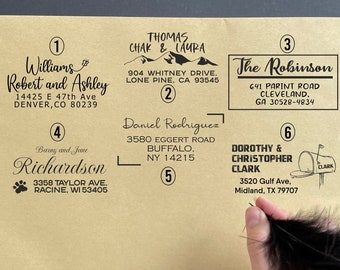 1
Williams
Robert and Ashley
14425 E 47th Ave
DENVER, CO 80239
THOMAS
CHAK & LAURA
904 WHITNEY DRIVE,
LONE PINE, CA 93545
2
3
The Robinson
641 PARINT ROAD
CLEVELAND,
GA 30528-4834
4
Barny and Jane
Richardson
3358 TAYLOR AVE,
RACINE, WI 53405
Daniel Rodriguez
3580 EGGERT ROAD
BUFFALO,
NY 14215
5
6
DOROTHY &
CHRISTOPHER
CLARK
CLARK
3520 Gulf Ave,
Midland, TX 79707